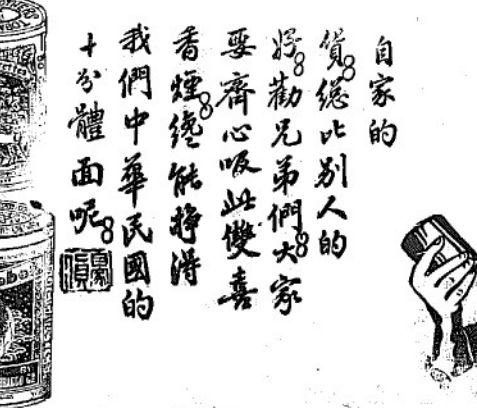 自家的
貨。總比別人的
好。勸兄弟們。大家
要齊心吸此雙喜
香煙。纔能掙得
我們中華民國的
十分體面呢。